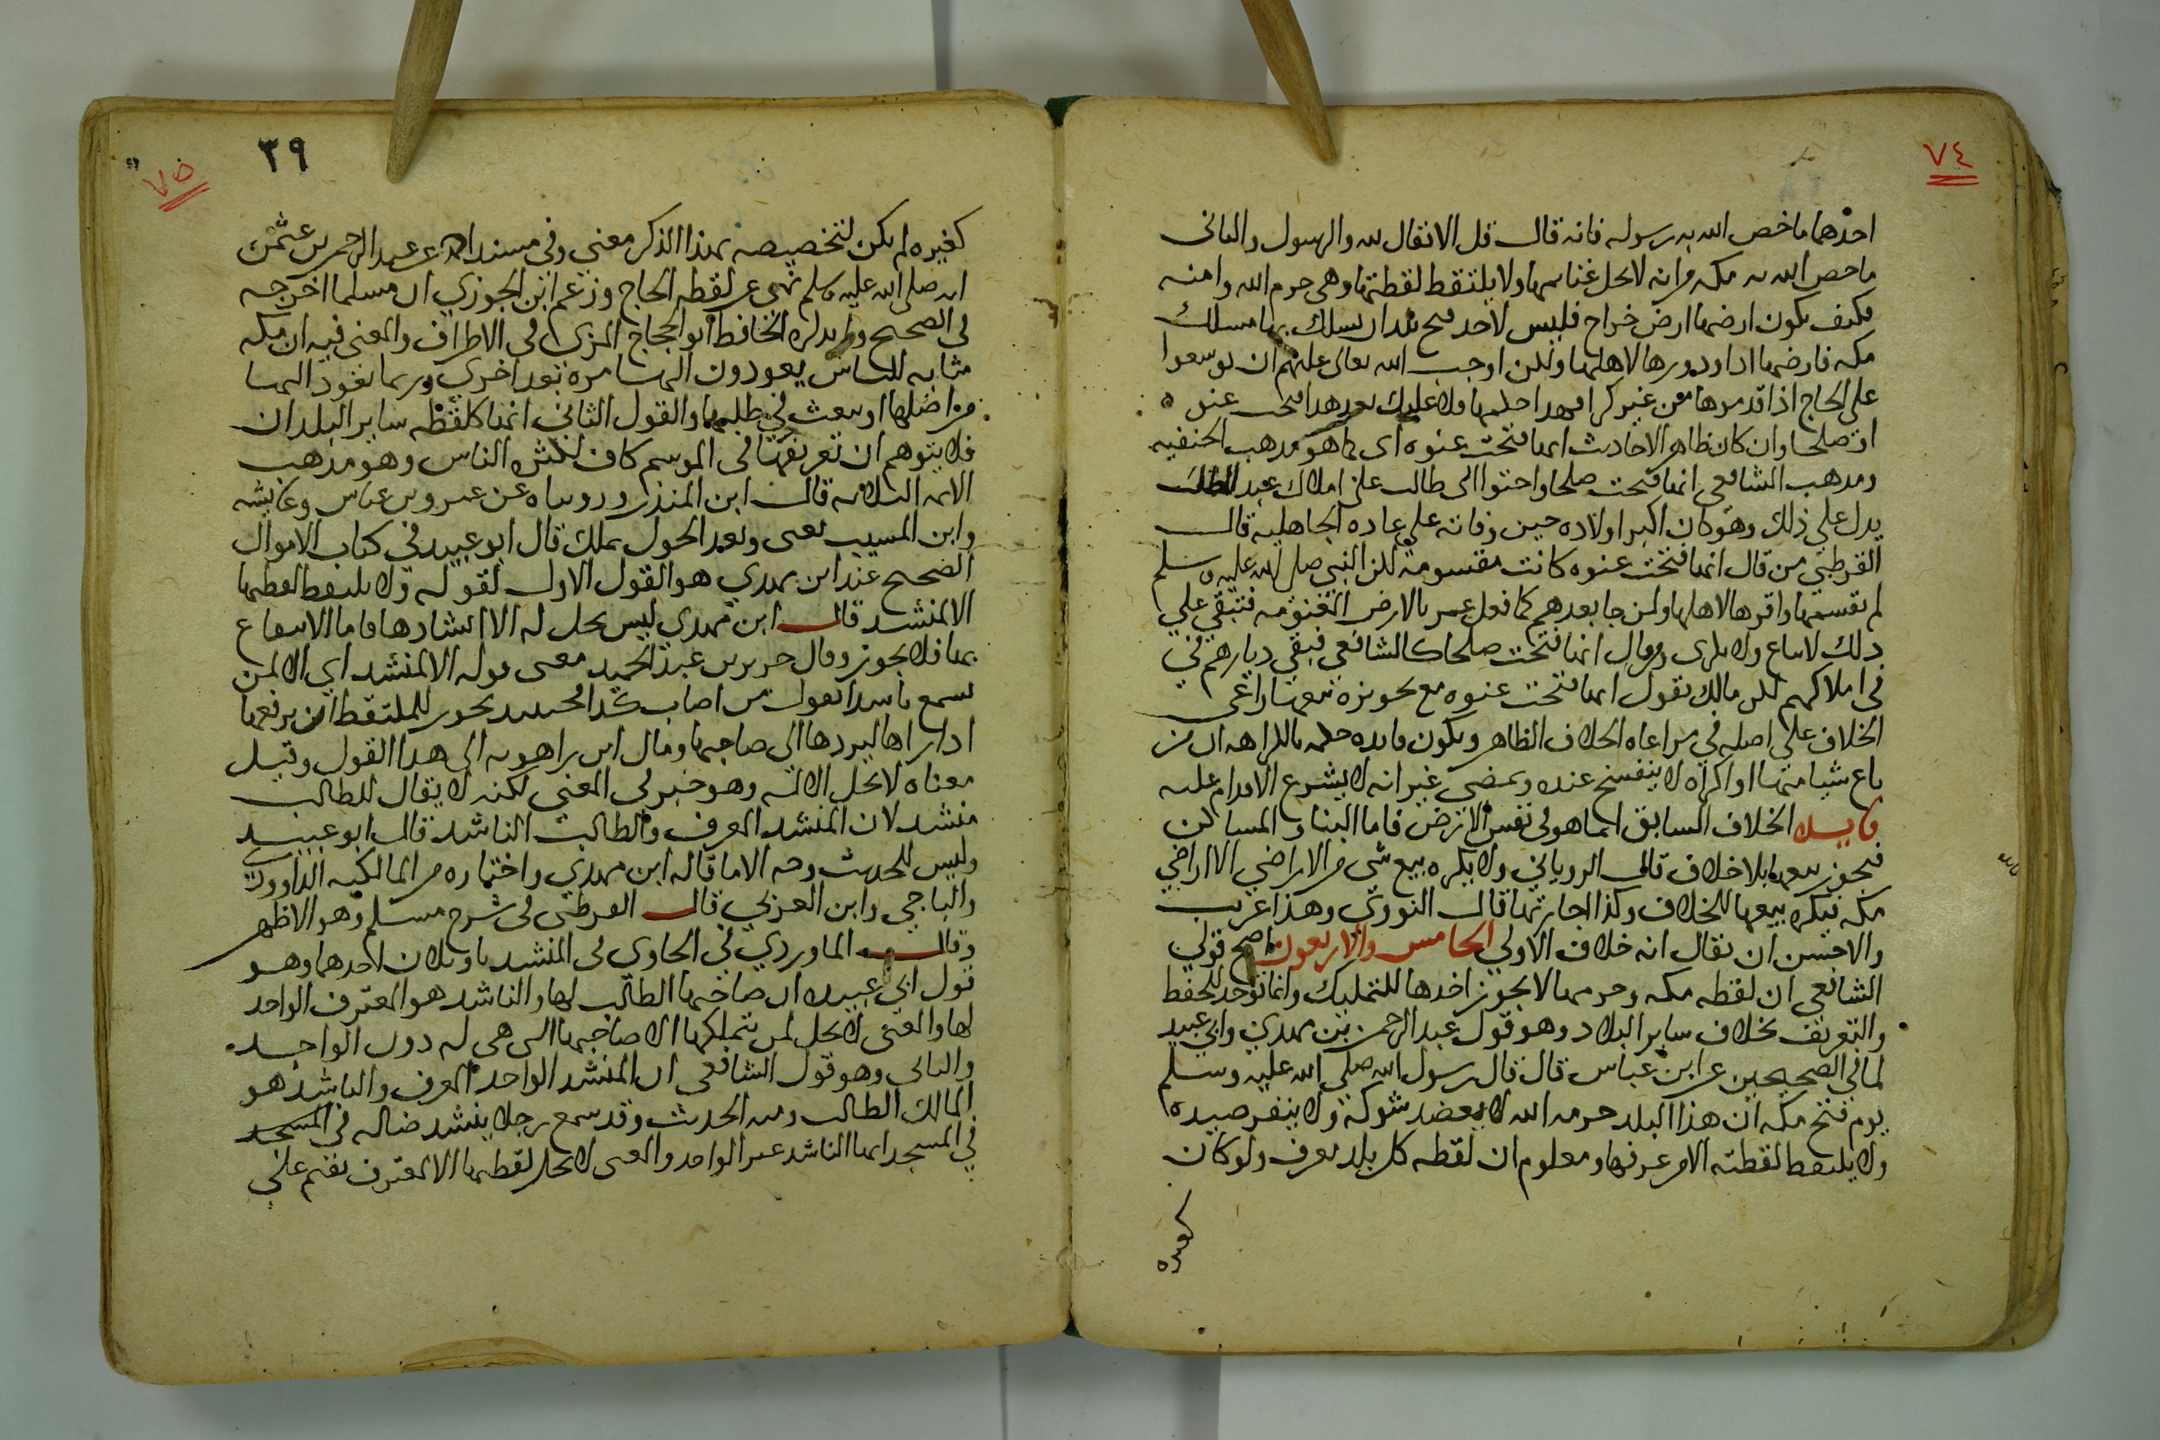 ٧٤
احدهما ما خص الله به رسوله فانه قال قل الانفال لله والرسول والثانى
ما خص الله به مكه من انه لا تحل غنايمها ولا يلتقط لقطتها وهى حرم الله وامنه
فكيف تكون ارضها ارض خراج فليس لاحد فتح بلدا ان يسلك بها مسلك
مكه فارضها اذا ودورها لاهلها ولكن اوجب الله تعالى عليهم ان يوسعوا
على الحاج اذا قدموها من غير كرا فهذا حكمها فلا عليك بعد هذا فتحت عنوه
او صلحا وان كان ظاهر الاحاديث انها فتحت عنوه اى كما هو مذهب الحنفيه
ومذهب الشافعى انها فتحت صلحا واحتوا ابى طالب على املاك عبد المطلب
يدل على ذلك وهو كان اكبر اولاده حين وفاته على عاده الجاهليه قال
القرطبي من قال انها فتحت عنوه كانت مقسومة لكن النبي صلى الله عليه وسلم
لم يقسمها واقرها لاهلها ولمن جا بعدهم كما فعل عمر بالارض المغنومه فتبقى على
ذلك لا تباع ولا تكرى ومن قال انها فتحت صلحا كالشافعي فتبقى ديارهم في
في املاكهم لكن مالك يقول انها فتحت عنوه مع تجويزه بيعها راعى
الخلاف على اصله في مراعاه الخلاف الظاهر وتكون فايده حكمه بالكراهه ان من
باع شيا منها او اكراه لا ينفسخ عنده ويمضى غير انه لا يشرع الاقدام عليه
فايده الخلاف السابق انما هو فى نفس الارض فاما البنا والمساكن
فيجوز بيعها بلا خلاف قال الروياني ولا يكره بيع شى من الاراضي الا اراضي
مكه فيكره بيعها للخلاف وكذا اجارتها قال النووي وهذا غريب
والاحسن ان يقال انه خلاف الاولي الخامس والاربعون اصح قولي
الشافعي ان لقطه مكه وحرمها لا يجوز اخذها للتمليك وانما توخذ للحفظ
والتعريف بخلاف ساير البلاد وهو قول عبد الرحمن بن مهدي وابي عبيد
لما في الصحيحين عن ابن عباس قال قال رسول الله صلي الله عليه وسلم
يوم فتح مكه ان هذا البلد حرمه الله لا يعضد شوكه ولا ينفر صيده
ولا يلتقط لقطته الا من عرفها ومعلوم ان لقطه كل بلد تعرف ولو كان
كغيره
٧٥
٣٩
كغيره لم يكن لتخصيصه بهذا الذكر معني وفى مسند احمد عن عبد الرحمن بن عثمن
انه صلى الله عليه وسلم نهى عن لقطه الحاج وزعم ابن الجوزي ان مسلما اخرجه
فى الصحيح ولم يذكره الحافظ ابو الحجاج المزى فى الاطراف والمعنى فيه ان مكه
مثابه للناس يعودون اليها مره بعد اخري وربما يعود اليها
من اضلها او يبعث في طلبها والقول الثاني انها كلقطه ساير البلدان
فلا يتوهم ان تعريفها فى الموسم كاف لكثره الناس وهو مذهب
الائمه الثلاثه قال ابن المنذر ورويناه عن عمر وبن عباس وعايشه
وابن المسيب يعنى وبعد الحول يملك قال ابو عبيد في كتاب الاموال
الصحيح عند ابن مهدي هو القول الاول لقوله ولا يلتقط لقطتها
الا لمنشد قال ابن مهدي ليس يحل له الا انشادها فاما الانتفاع
بها فلا يجوز وقال جرير بن عبد الحميد معنى قوله الا لمنشد اي الا لمن
سمع ناشدا يقول من اصاب كذا فحينئذ يجوز للملتقط ان يرفعها
اذا راها ليردها الى صاحبها ومال ابن راهويه الى هذا القول وقيل
معناه لا تحل وهو خير فى المعني لكنه لا يقال للطالب
منشد لان المنشد المعرف والطالب الناشد قال ابو عبيد
وليس للحديث وجه الا ما قاله ابن مهدي واختاره من المالكيه الداوودي
والباجي وابن العربي قال القرطبى فى شرح مسلم وهو الاظهر
وقال الماوردي في الحاوى فى المنشد تاويلان احدهما وهو
قول ابي عبيد ان صاحبها الطالب لها والناشد هو المعرف الواجد
لها والمعنى لا تحل لمن يتملكها الا صاحبها التى هى له دون الواجد
والثانى وهو قول الشافعى ان المنشد الواجد المعرف والناشد هو
المالك الطالب ومنه الحديث وقد سمع رجلا ينشد ضاله فى المسجد
في المسجد ايها الناشد غيرك الواجد والمعنى لا تحل لقطتها الا لمعرف يقيم على